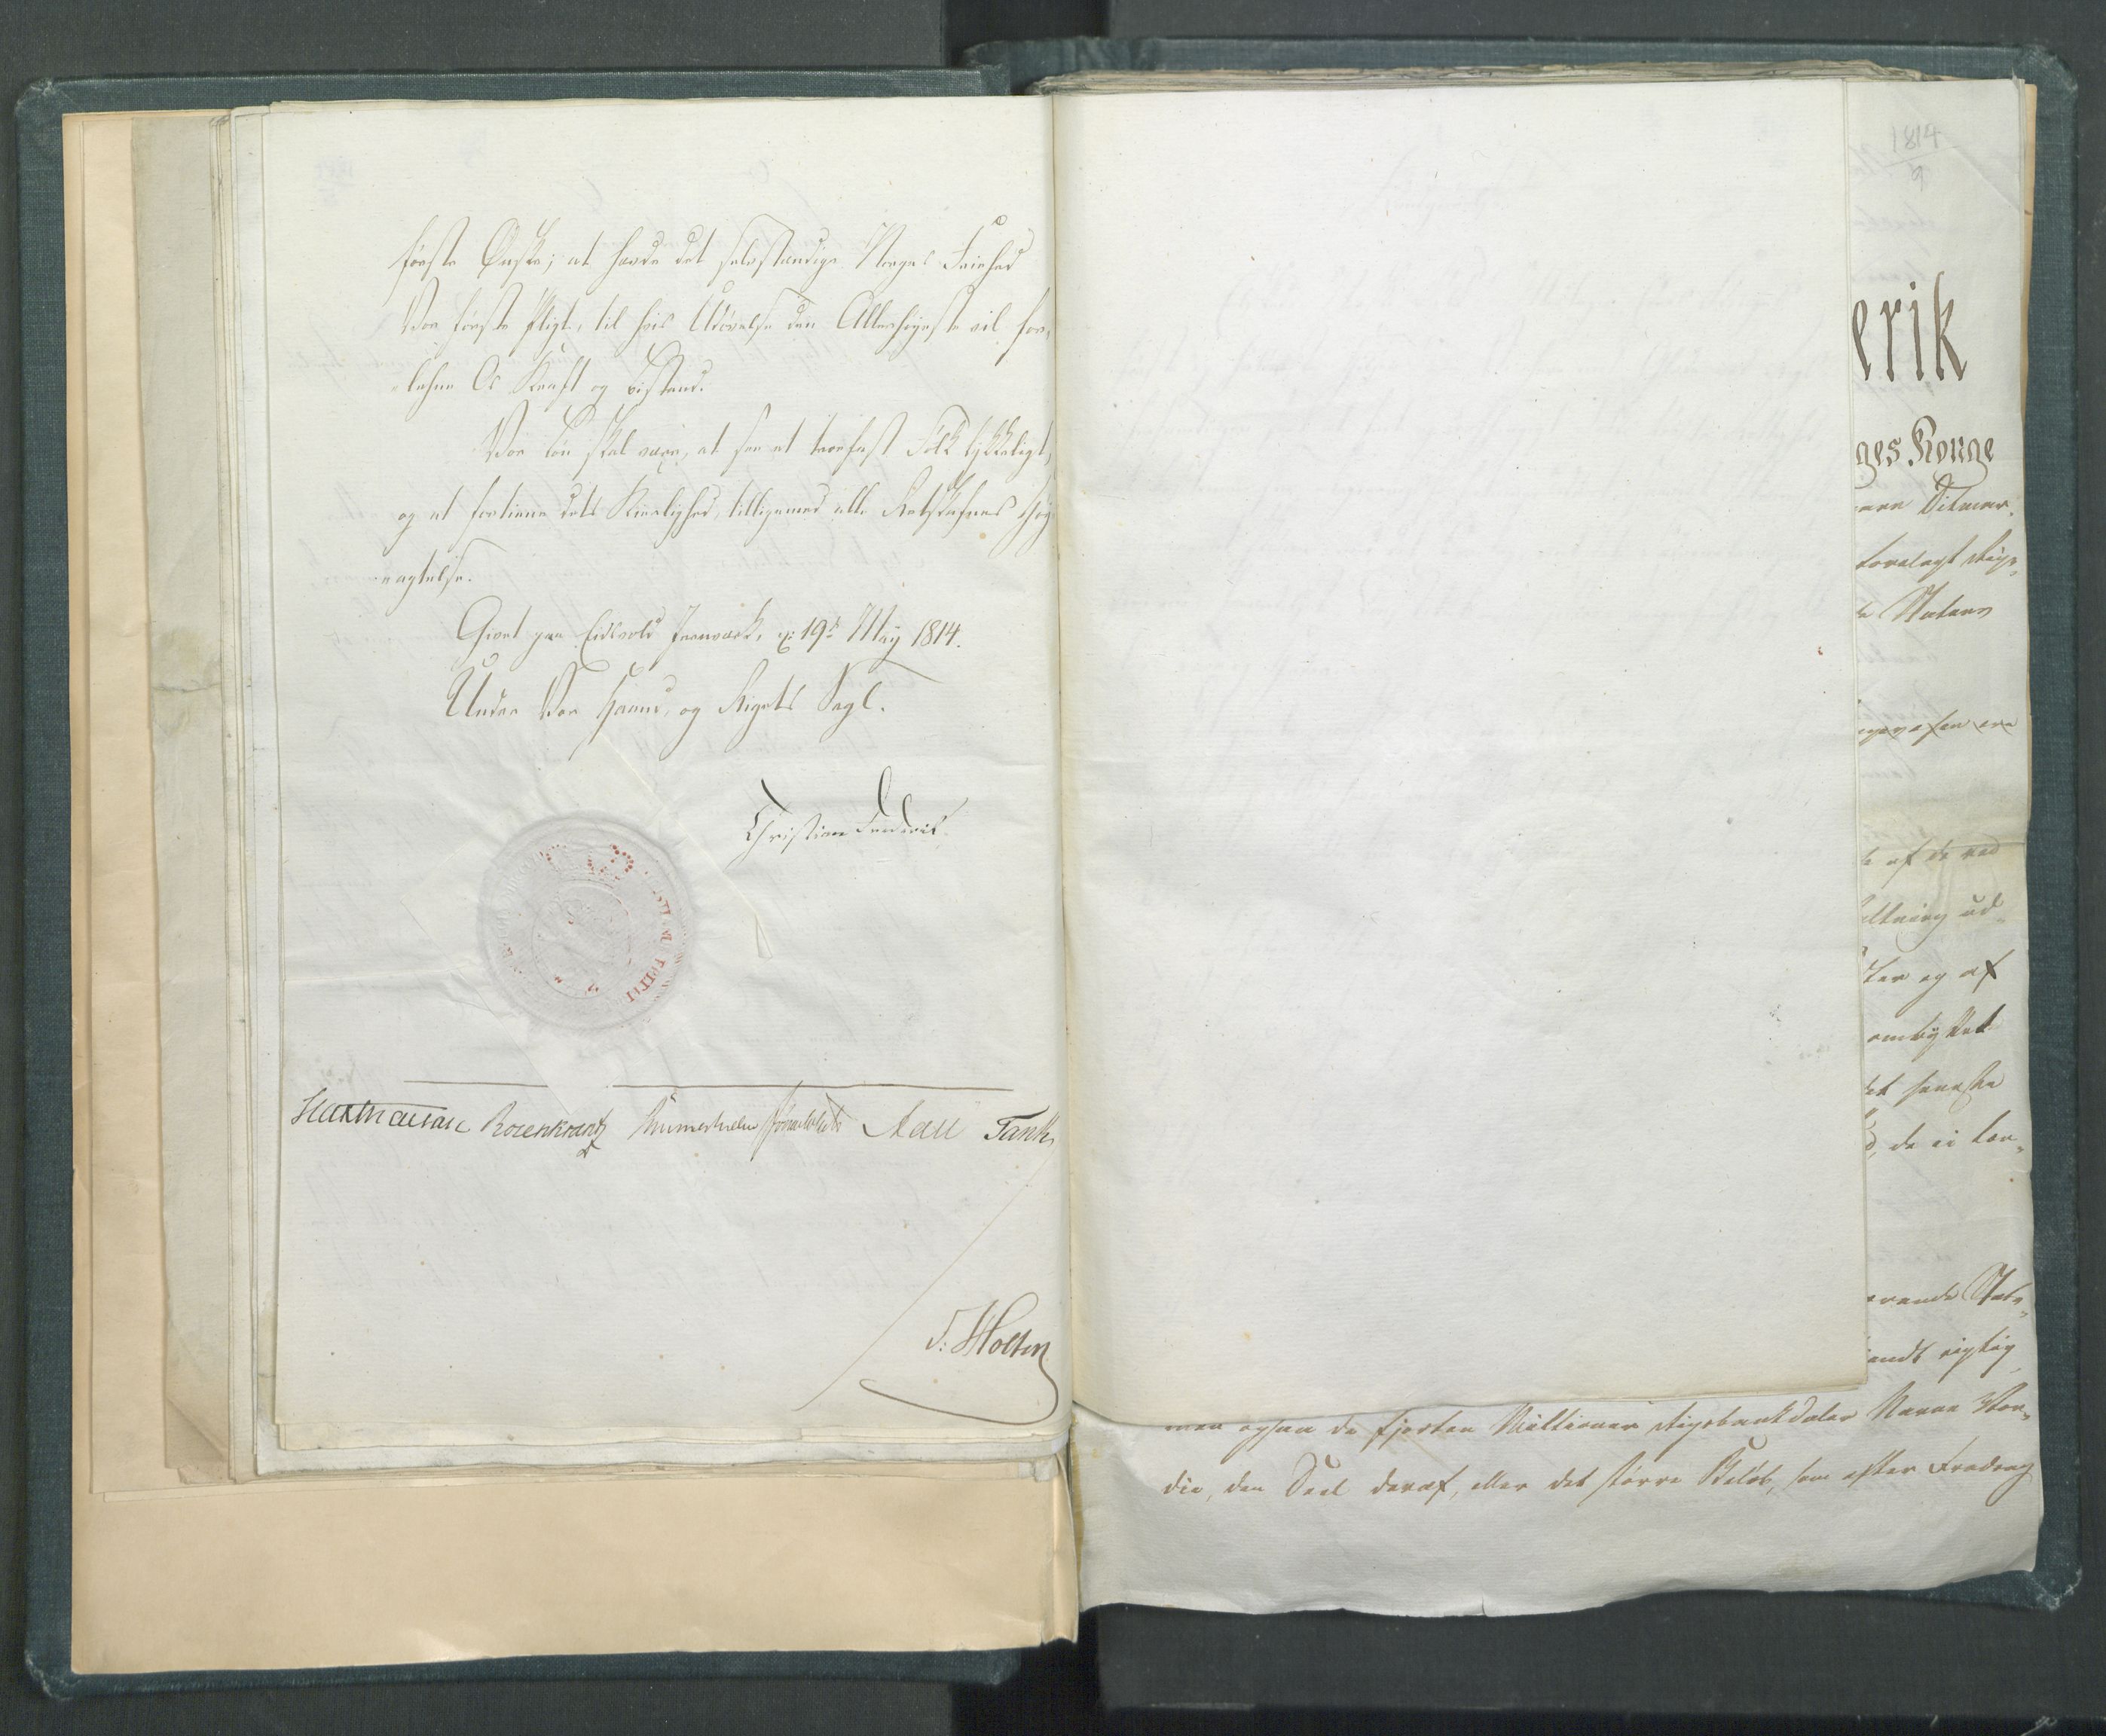 første Ønske; at hævde det selvstændige Norges Friehed
Vor første Pligt, til hvis Udøvelse den Allerhøyeste vil for-
lehne Os Kraft og Bistand.
Vor Løn skal være, at see et troefast Folk lykkeligt,
og at fortiene dets Kierlighed, tilligemed alle Retskafnes Høy-
agtelse.
Givet paa Eidsvold Jernværk, 19d May 1814.
Under Vor Haand, og Rigets Segl.
Christian Frederik.
Haxthausen Rosenkrantz Sommerhielm Aall Tank
T: Holten
1814
9
erik
ges Konge
Ditmar
forelagt Rigs-
Statens
af de ved
ud-
og af
ombyttet
seneste
de ei
Stats-
rigtig
men ogsaa de fjorten Millioner Rigsbankdaler Navne Vær-
die, den Deel deraf, eller det større Beløb, som efter Fradrag